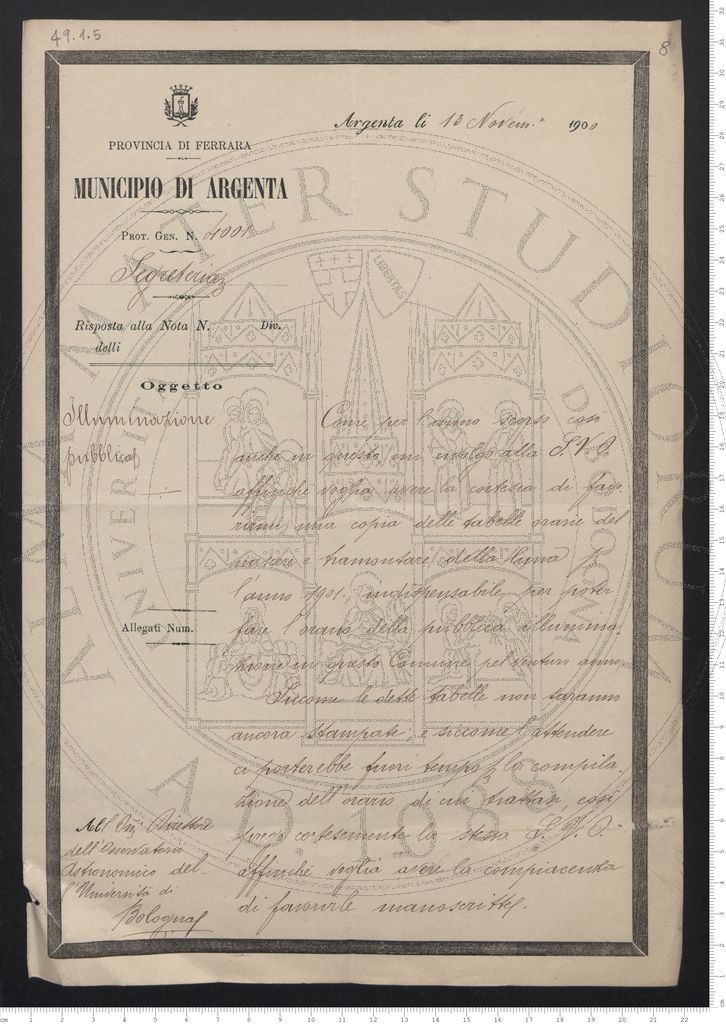 49.1.5
8
Argenta li 13 Novem.e 1900
PROVINCIA DI FERRARA
MUNICIPIO DI ARGENTA
PROT. GEN. N. 4001
Segreteria
Risposta alla Nota N. Div.
delli
Oggetto
Illuminazione
pubblica
Come per l'anno scorso così
anche in questo, mi rivolgo alla S.V.O.
affinchè voglia avere la cortesia di favo-
rirmi una copia delle tabelle orarie del
nascere e tramontare della luna p.
l'anno 1901, indispensabile per poter
fare l'orario della pubblica illumina-
zione in questo Comune pel venturo anno.
Siccome le dette tabelle non saranno
ancora stampate, e siccome l'attendere
ci porterebbe fuori tempo p. la compila-
zione dell'orario di cui trattasi, così
prego cortesemente la stessa S.V.O.
affinchè voglia avere la compiacenza
di favorirle manoscritte.
Allegati Num.
All'On. Direttore
dell'Osservatorio
Astronomico del-
l'Università di
Bologna
ALMA MATER STUDIORUM
UNIVERSITÀ DI BOLOGNA
LIBERTAS
A.D. 1088
cm 1 2 3 4 5 6 7 8 9 10 11 12 13 14 15 16 17 18 19 20 21 22